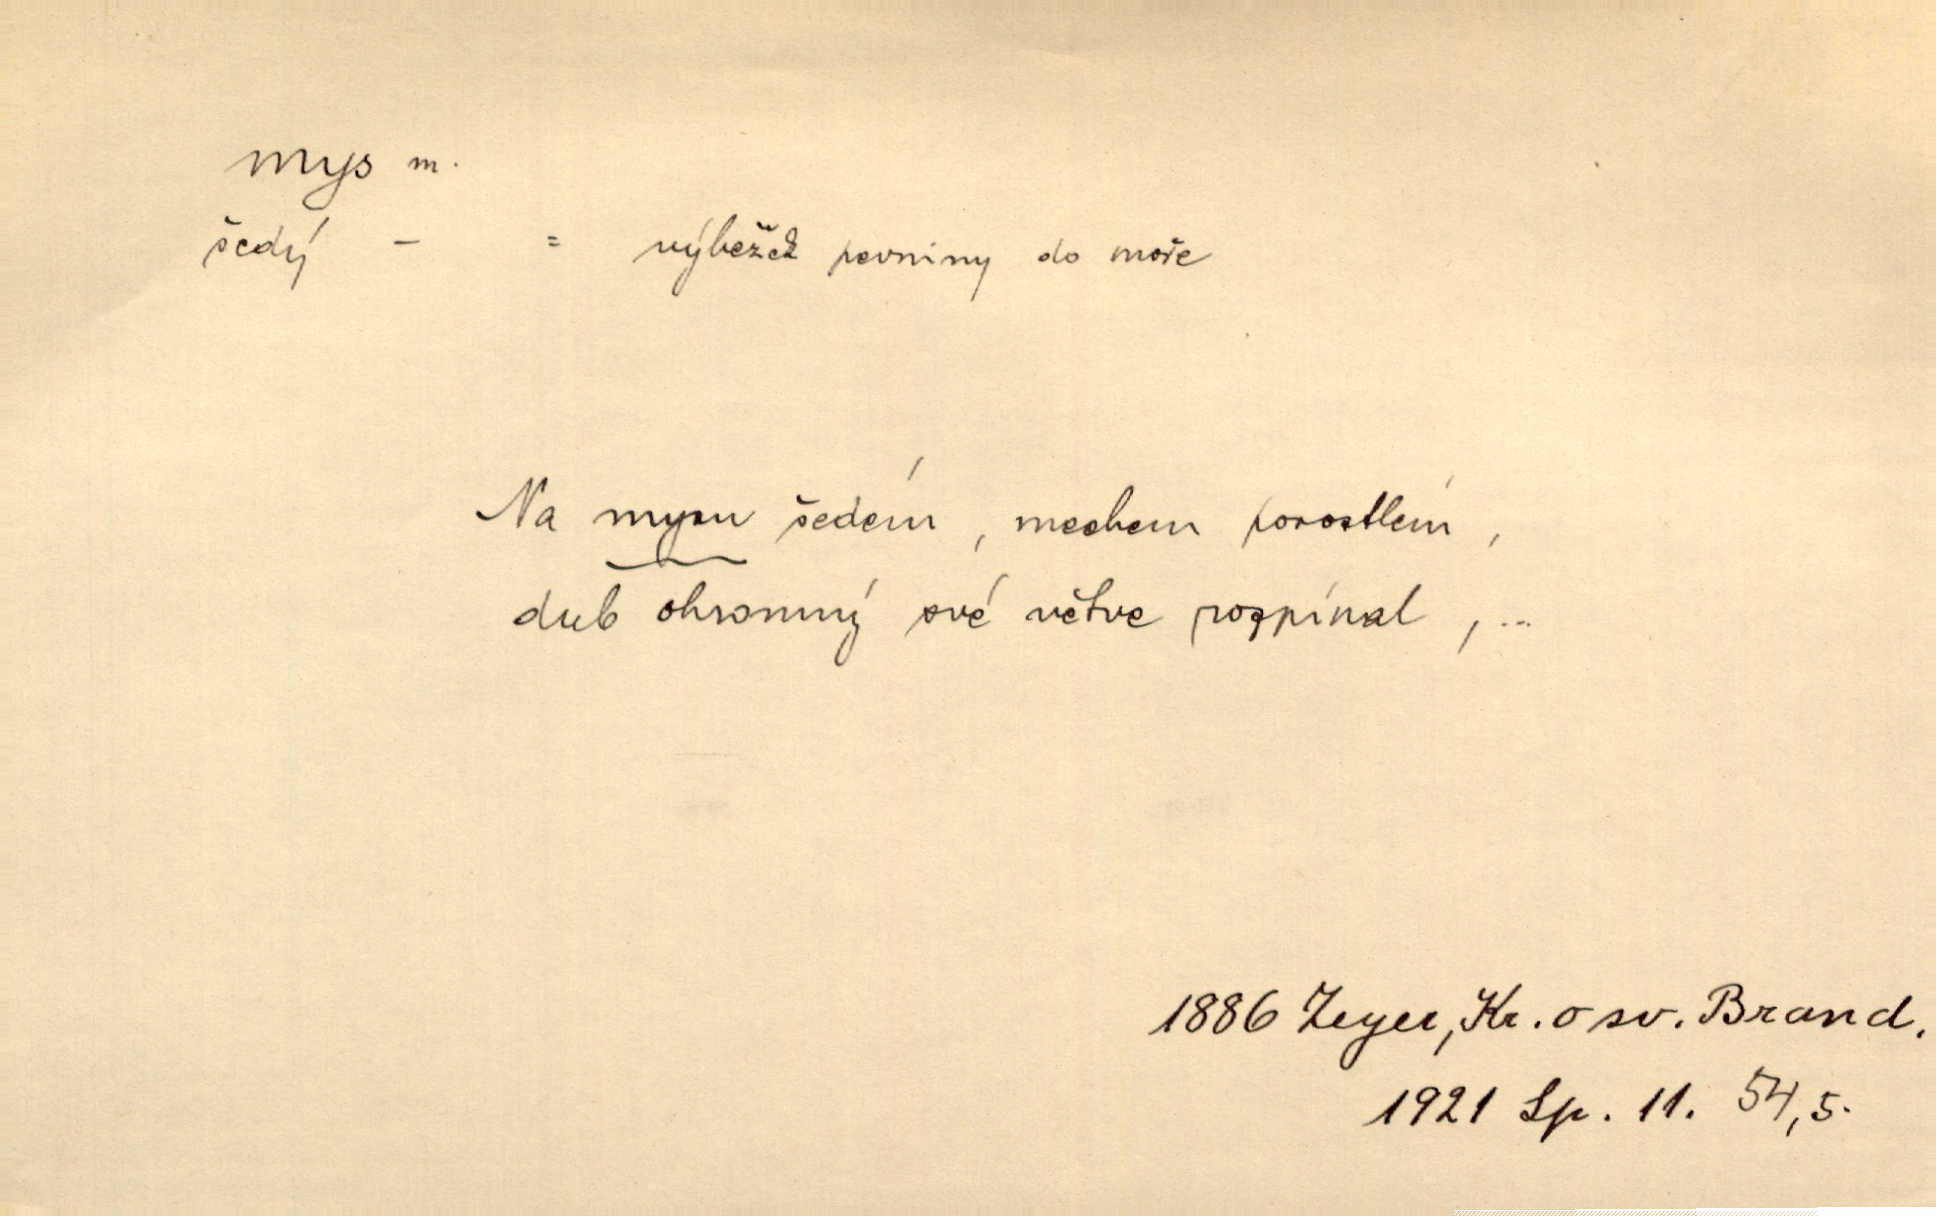 mys m.
šedý – = výbežek pevniny do moře
Na mysu šedém, mechem porostlém,
dub ohromný své větve rozpínal,...
1886 Zeyer, Kr. o sv. Brand.
1921 Sp. 11. 54,5.